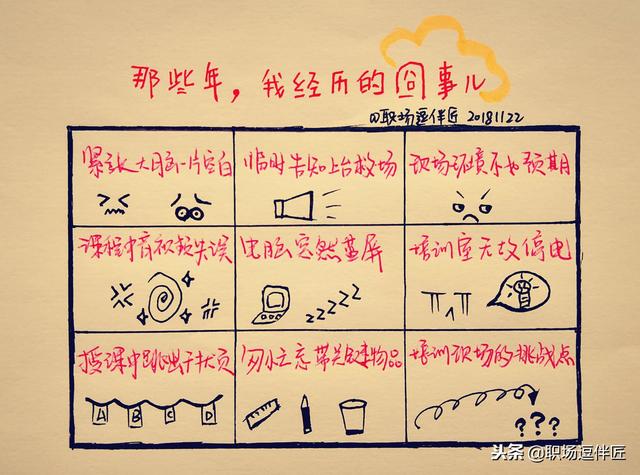 那些年，我经历的囧事儿
@职场逗伴匠 20181122
紧张大脑一片空白
临时告知上台救场
现场环境不如预期
课程中音视频失误
电脑突然蓝屏
培训室无故停电
zzzzz
授课中跳出干扰
匆忙忘带关键物品
培训现场的挑战点
A B C D
???
头条@职场逗伴匠